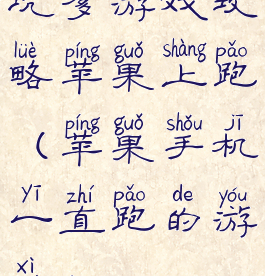 坑爹游戏攻
lüè píng guǒ shàng pǎo
略苹果上跑
píng guǒ shǒu jī
(苹果手机
yī zhí pǎo de yóu
一直跑的游
xì